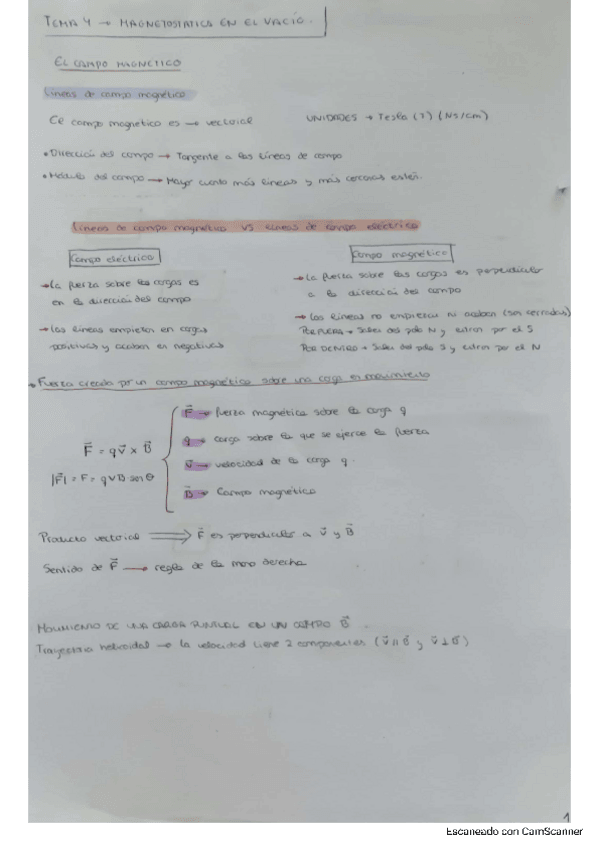 TEMA 4 → MAGNETOSTATICA EN EL VACÍO.
EL CAMPO MAGNÉTICO
Líneas de campo magnético
El campo magnético es → vectorial UNIDADES → Tesla (T) (Ns/Cm)
• Dirección del campo → Tangente a las líneas de campo
• Módulo del campo → Mayor cuanto más líneas y más cercanas estén.
Líneas de campo magnético VS Líneas de campo eléctrico
Campo eléctrico
→ La fuerza sobre las cargas es
en la dirección del campo
→ Las líneas empiezan en cargas
positivas y acaban en negativas
Campo magnético
→ La fuerza sobre las cargas es perpendicular
a la dirección del campo
→ Las líneas no empiezan ni acaban (son cerradas)
POR FUERA → Salen del polo N y entran por el S
POR DENTRO → Salen del polo S y entran por el N
• Fuerza creada por un campo magnético sobre una carga en movimiento
F⃗ = q v⃗ x B⃗
|F⃗| = F = qVB sen θ
F⃗ → fuerza magnética sobre la carga q
q → carga sobre la que se ejerce la fuerza
v⃗ → velocidad de la carga q.
B⃗ → Campo magnético
Producto vectorial ⟹ F⃗ es perpendicular a v⃗ y B⃗
Sentido de F⃗ → regla de la mano derecha
MOVIMIENTO DE UNA CARGA PUNTUAL EN UN CAMPO B⃗
Trayectoria helicoidal → la velocidad tiene 2 componentes (v⃗ ∥ B⃗ y v⃗ ⊥ B⃗)
1
Escaneado con CamScanner